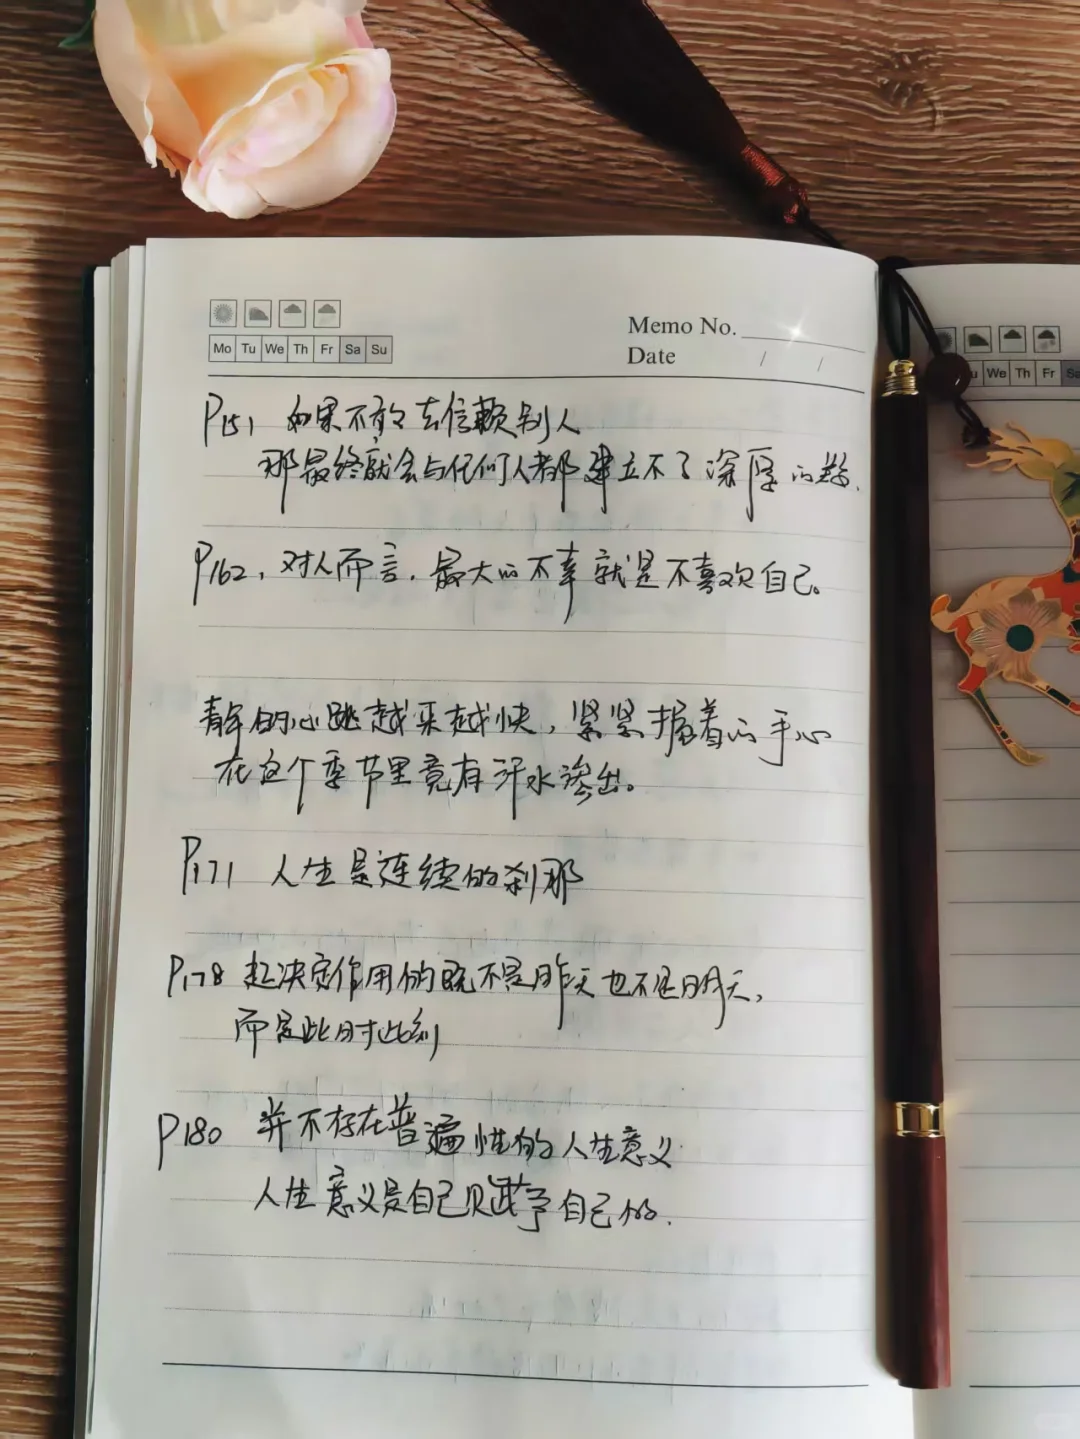 Memo No.
Mo Tu We Th Fr Sa Su
Date / /
P151 如果不敢去信赖别人
那最终就会与任何人都建立不了深厚的
P162, 对人而言, 最大的不幸就是不喜欢自己。
青年的心跳越来越快, 紧紧握着的手心
在这个季节里竟有汗水渗出。
P171 人生是连续的刹那
P178 起决定作用的既不是昨天也不是明天,
而是此时此刻
P180 并不存在普遍性的人生意义
人生意义是自己赋予自己的.
We Th Fr